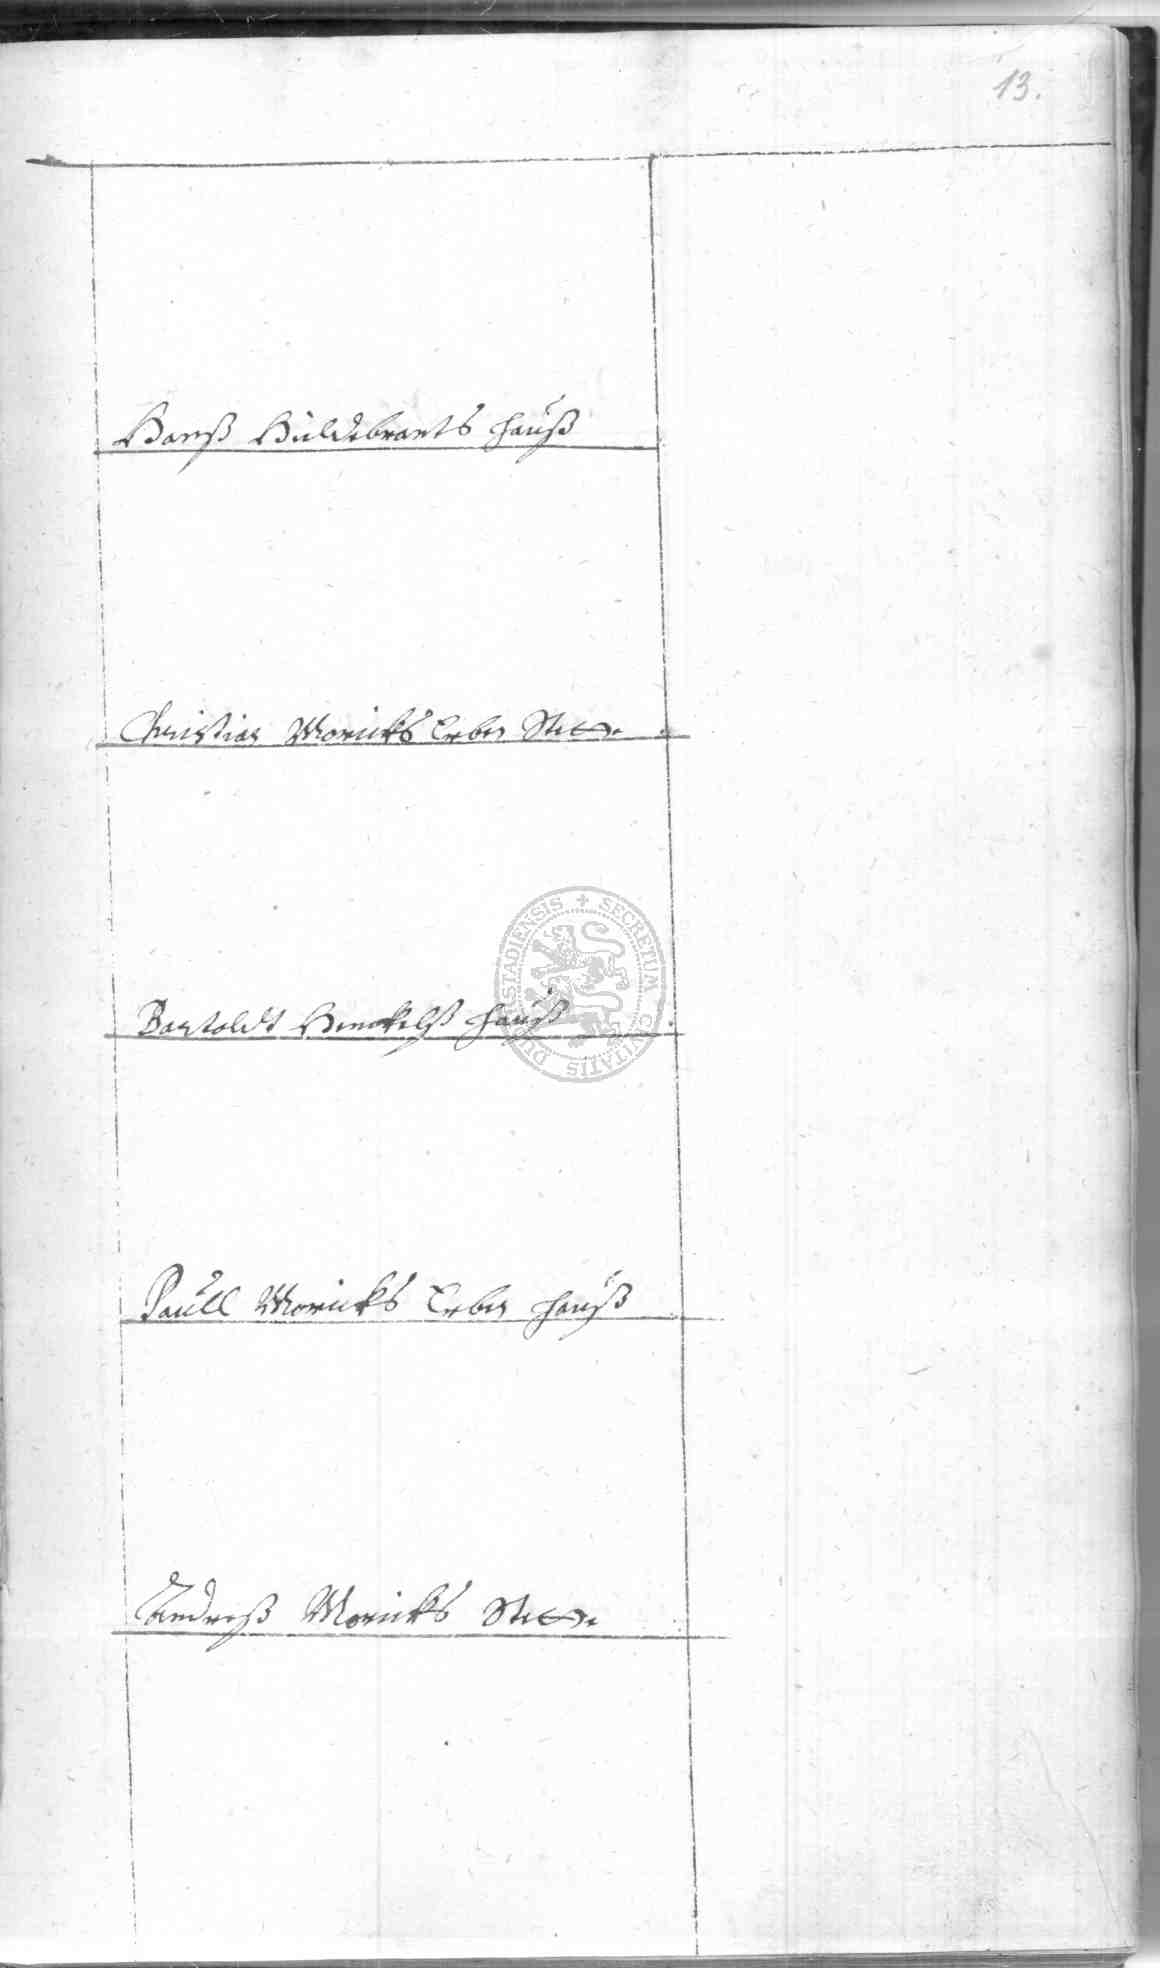 13.
Hanß Hildebrants Hauß
Christian Moricks Erben Stette.
Bartoldt Henckelß Hauß
Paull Moricks Erben Hauß
Andreß Moricks Stette.
SECRETUM CIVITATIS DUDERSTADIENSIS